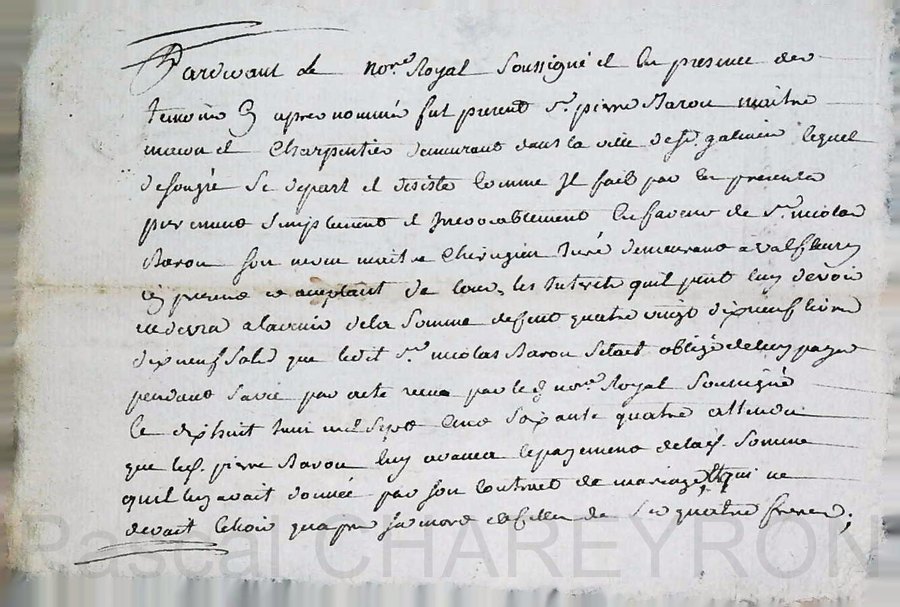 Pardevant le no.re Royal Soussigné et En presence des
temoins Cy apres nommés fut present S.r pierre Barou maitre
macon et Charpentier demeurant dans la ville de S.t galmier lequel
de son gré Se depart et desiste Comme Il fait par Ces presentes
purement Simplement et Irrevocablement En faveur de S.r nicolas
Barou Son neveu maitre Chirugien Juré demeurant a valfleury
Cy present et aceptant de tous les Interets quil peut luy devoir
ou devra a lavenir de la Somme de Cent quatre vingt dixneuf livres
dixneuf Sols que ledit S.r nicolas Barou Setait obligé de luy payer
pendant Sa vie par acte recu par le d. no.re Royal Soussigné
le dixhuit Juin mil Sept Cent Soixante quatre attendu
que led. pierre Barou luy avance le payement de lad. Somme
quil luy avait donnée par Son Contract de mariage et qui ne
devait Echoir qu apres Sa mort et Celles de Ses quatre freres ;
Pascal CHAREYRON